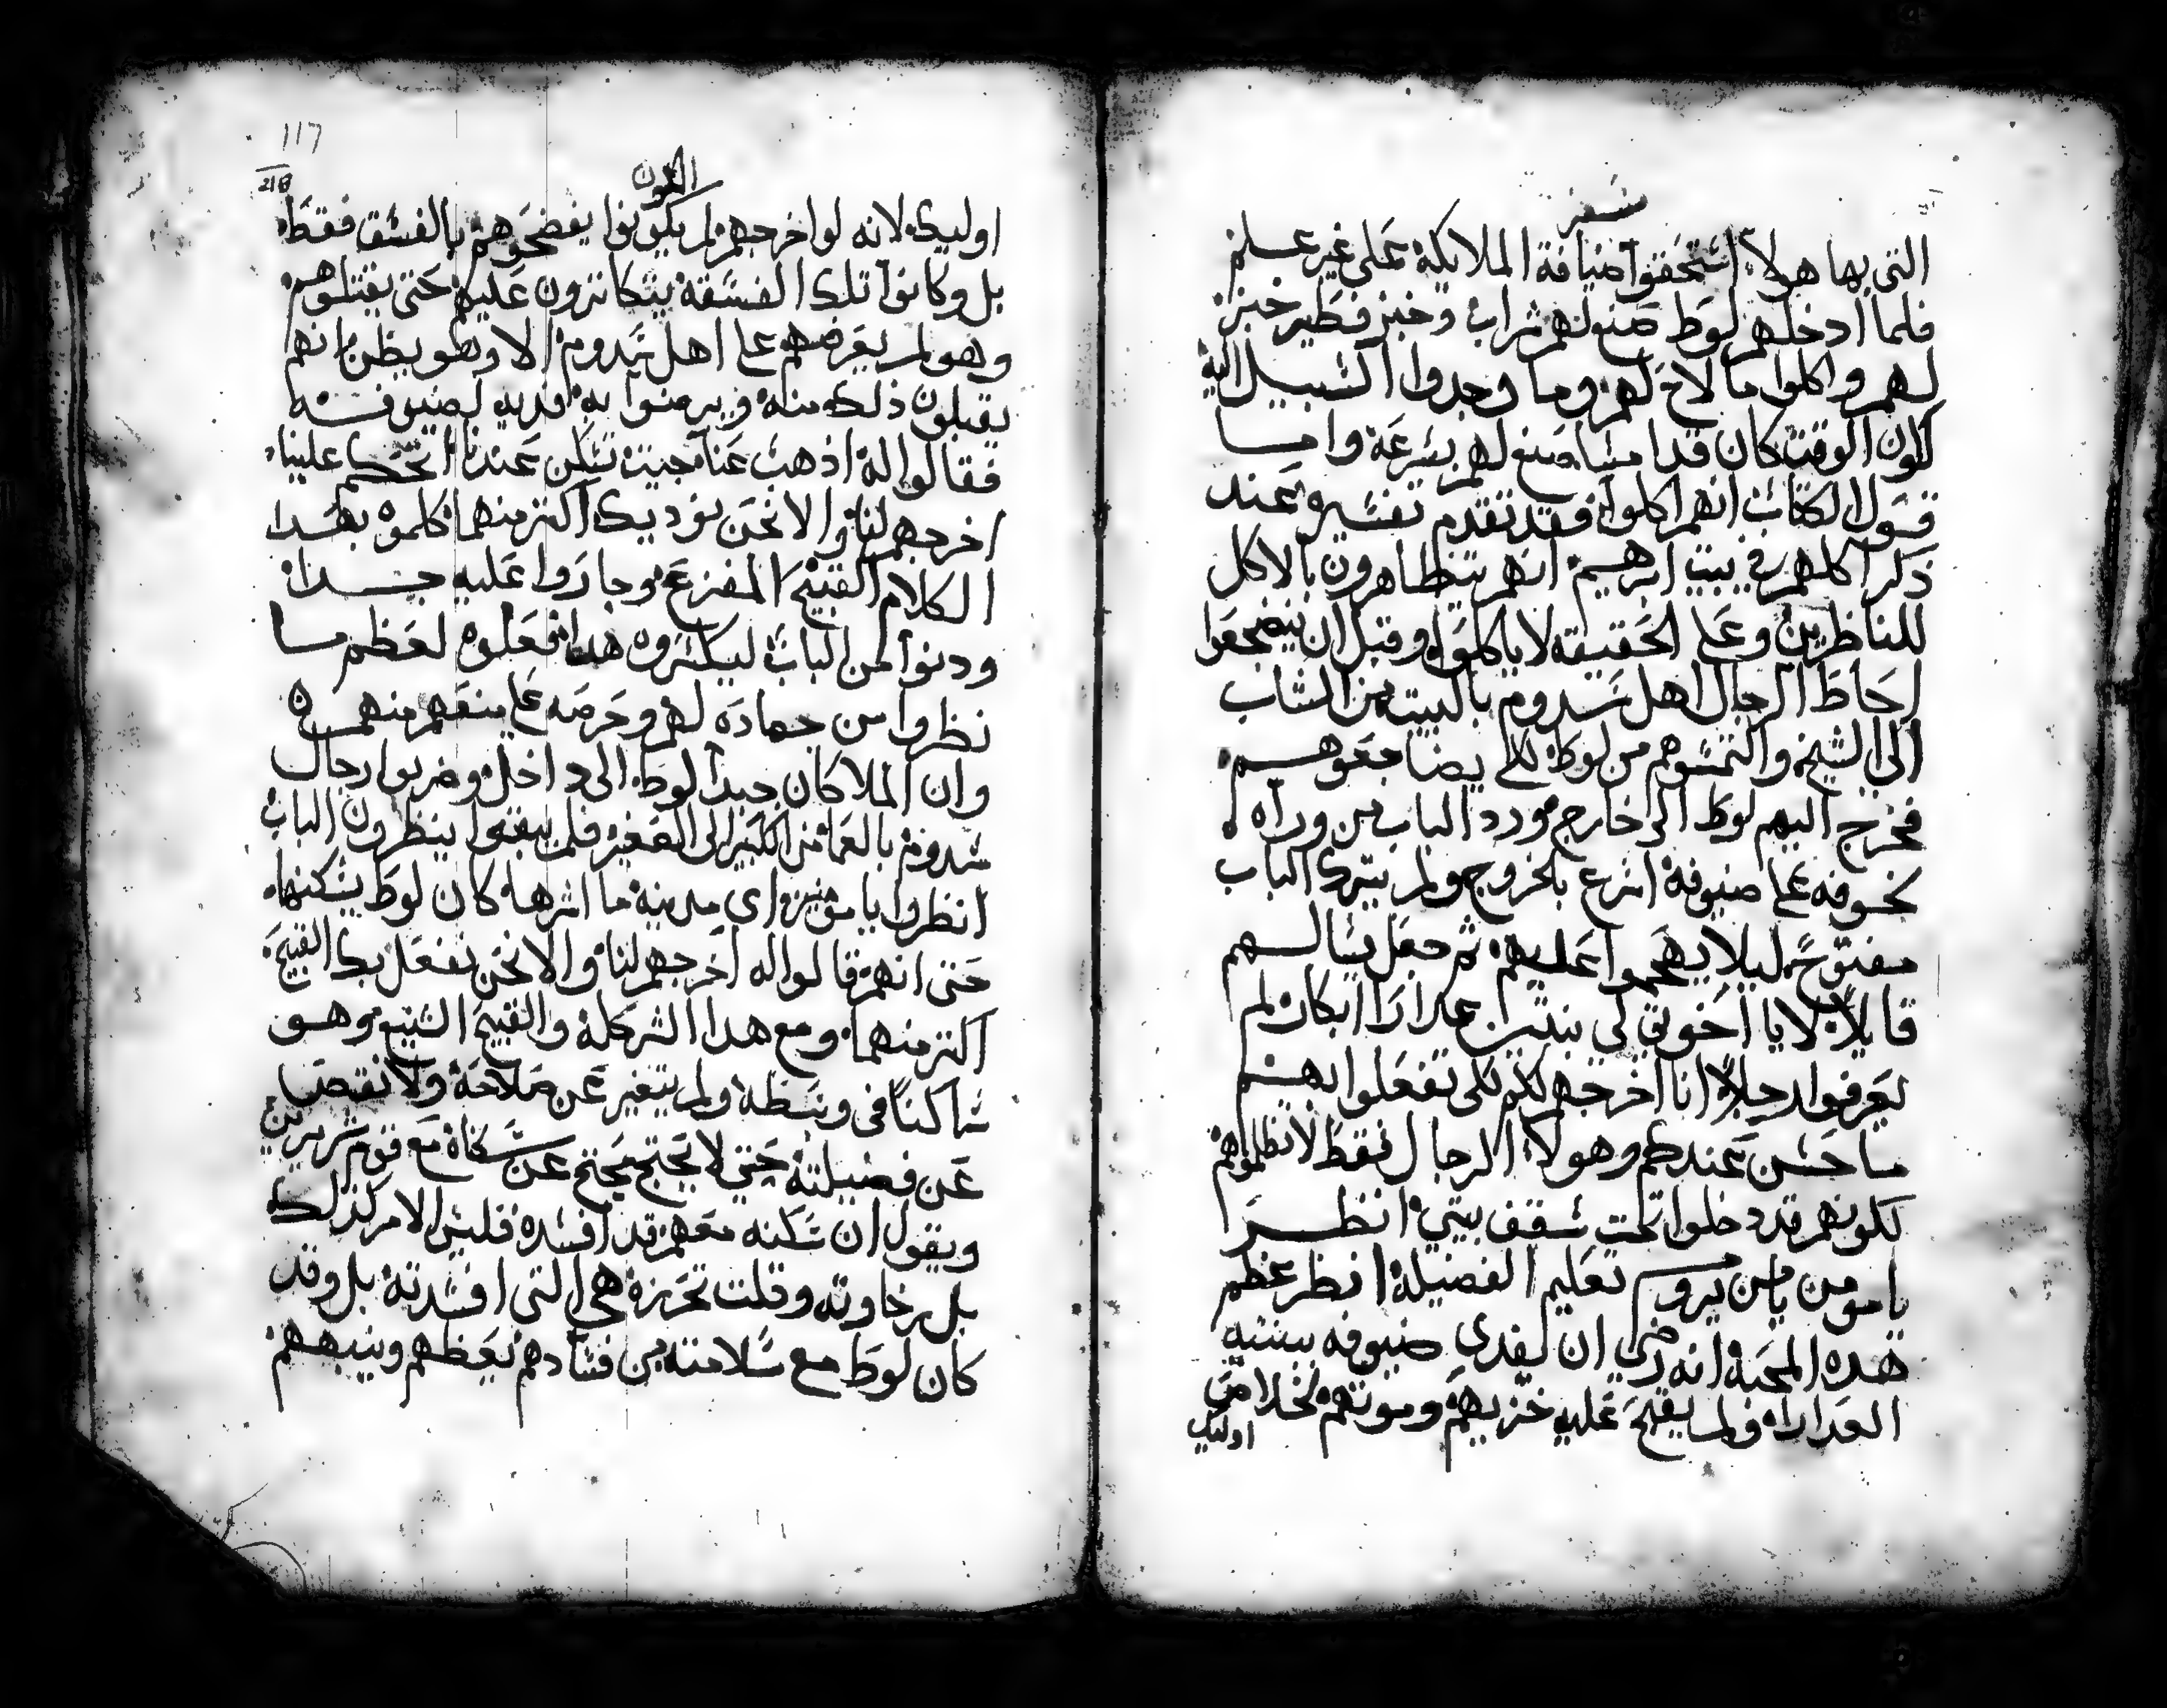 سفر
التى بها هولا استحقوا ضيافة الملايكة على غير علم
فلما ادخلهم لوط صنع لهم شراب وخبز فطير خبز
لهم واكلوا ما لاح لهم وما وجدوا السبيل اليه
لكون الوقت كان قد امسا صنع لهم بسرعة واما
قول الكتاب انهم اكلوا فقد تقدم تفسيره عند
ذكر اكلهم في بيت ابرهيم انهم يتظاهرون بالاكل
للناظرين وعلى الحقيقه لا ياكلوا وقبل ان يتضجعوا
احاط الرجال اهل سدوم بالبيت من الشاب
الى الشيخ والتمسوهم من لوط لكي يضاجعوهم
فخرج اليهم لوط الى خارج ورد الباب من وراه
لخوفه على ضيوفه اسرع بالخروج ولم يترك الباب
مفتوح ليلا يهجموا عليهم ثم جعل يسالهم
قايلا لا يا اخوتي لي بنتين عدارا ابكار لم
يعرفوا رجلا انا اخرجهم لكم لكى تفعلوا بهم
ما حسن عندكم وهولا الرجال فقط لا تظلموهم
لكونهم قد دخلوا تحت سقف بيتي انظر
يا مومن يا من يروم تعليم الفضيلة انظر عظم
هذه المحبة انه رضي ان يفدى ضيوفه ببنتيه
العدارا ولم يقبح عليه خزيهم وموتهم لخلاص
اوليك
التكوين
اوليك لانه لو اخرجهم لم يكونوا يفضحوهم بالفسق فقط
بل وكانوا تلك الفسقة يتكاترون عليهم حتى يقتلوهم
وهو لم يعرضهم على اهل سدوم الا وهو يظن انهم
يقبلون ذلك منه ويرضوا به فديه لضيوفه
فقالوا له اذهب عنا جيت تسكن عندنا اتحكم علينا
اخرجهم لنا والا نحن نوديك اكتر منهما كلموه بهدا
الكلام القبيح المفزع وجاروا عليه جدا
ودنوا من الباب ليكسروه هدا فعلوه لعظم ما
نظروا من جهاده لهم وحرصه على منعهم منهم
وان الملاكان جبدا لوط الى داخل وضربوا رجال
سدوم بالعما من الكبير الى الصغير فلم يبقوا ينظرون الباب
انظروا يا مومنين اى مدينة ما اشرها كان لوط يسكنها
حتى انهم قالوا له اخرجهم لنا والا نحن نفعل بك القبيح
اكتر منهما ومع هدا الشر كله والقبيح الشنيع وهو
ساكنا فى وسطه ولم يتغير عن صلاحه ولا نقص
عن فضيلته حتي لا يحتج محتج عن سكناه مع قوم شريرين
ويقول ان سكنه معهم قد افسده فليس الامر كذلك
بل رخاوته وقلت تحرزه هي التى افسدته بل وقد
كان لوط مع سلامته من فسادهم يعظهم وينبههم